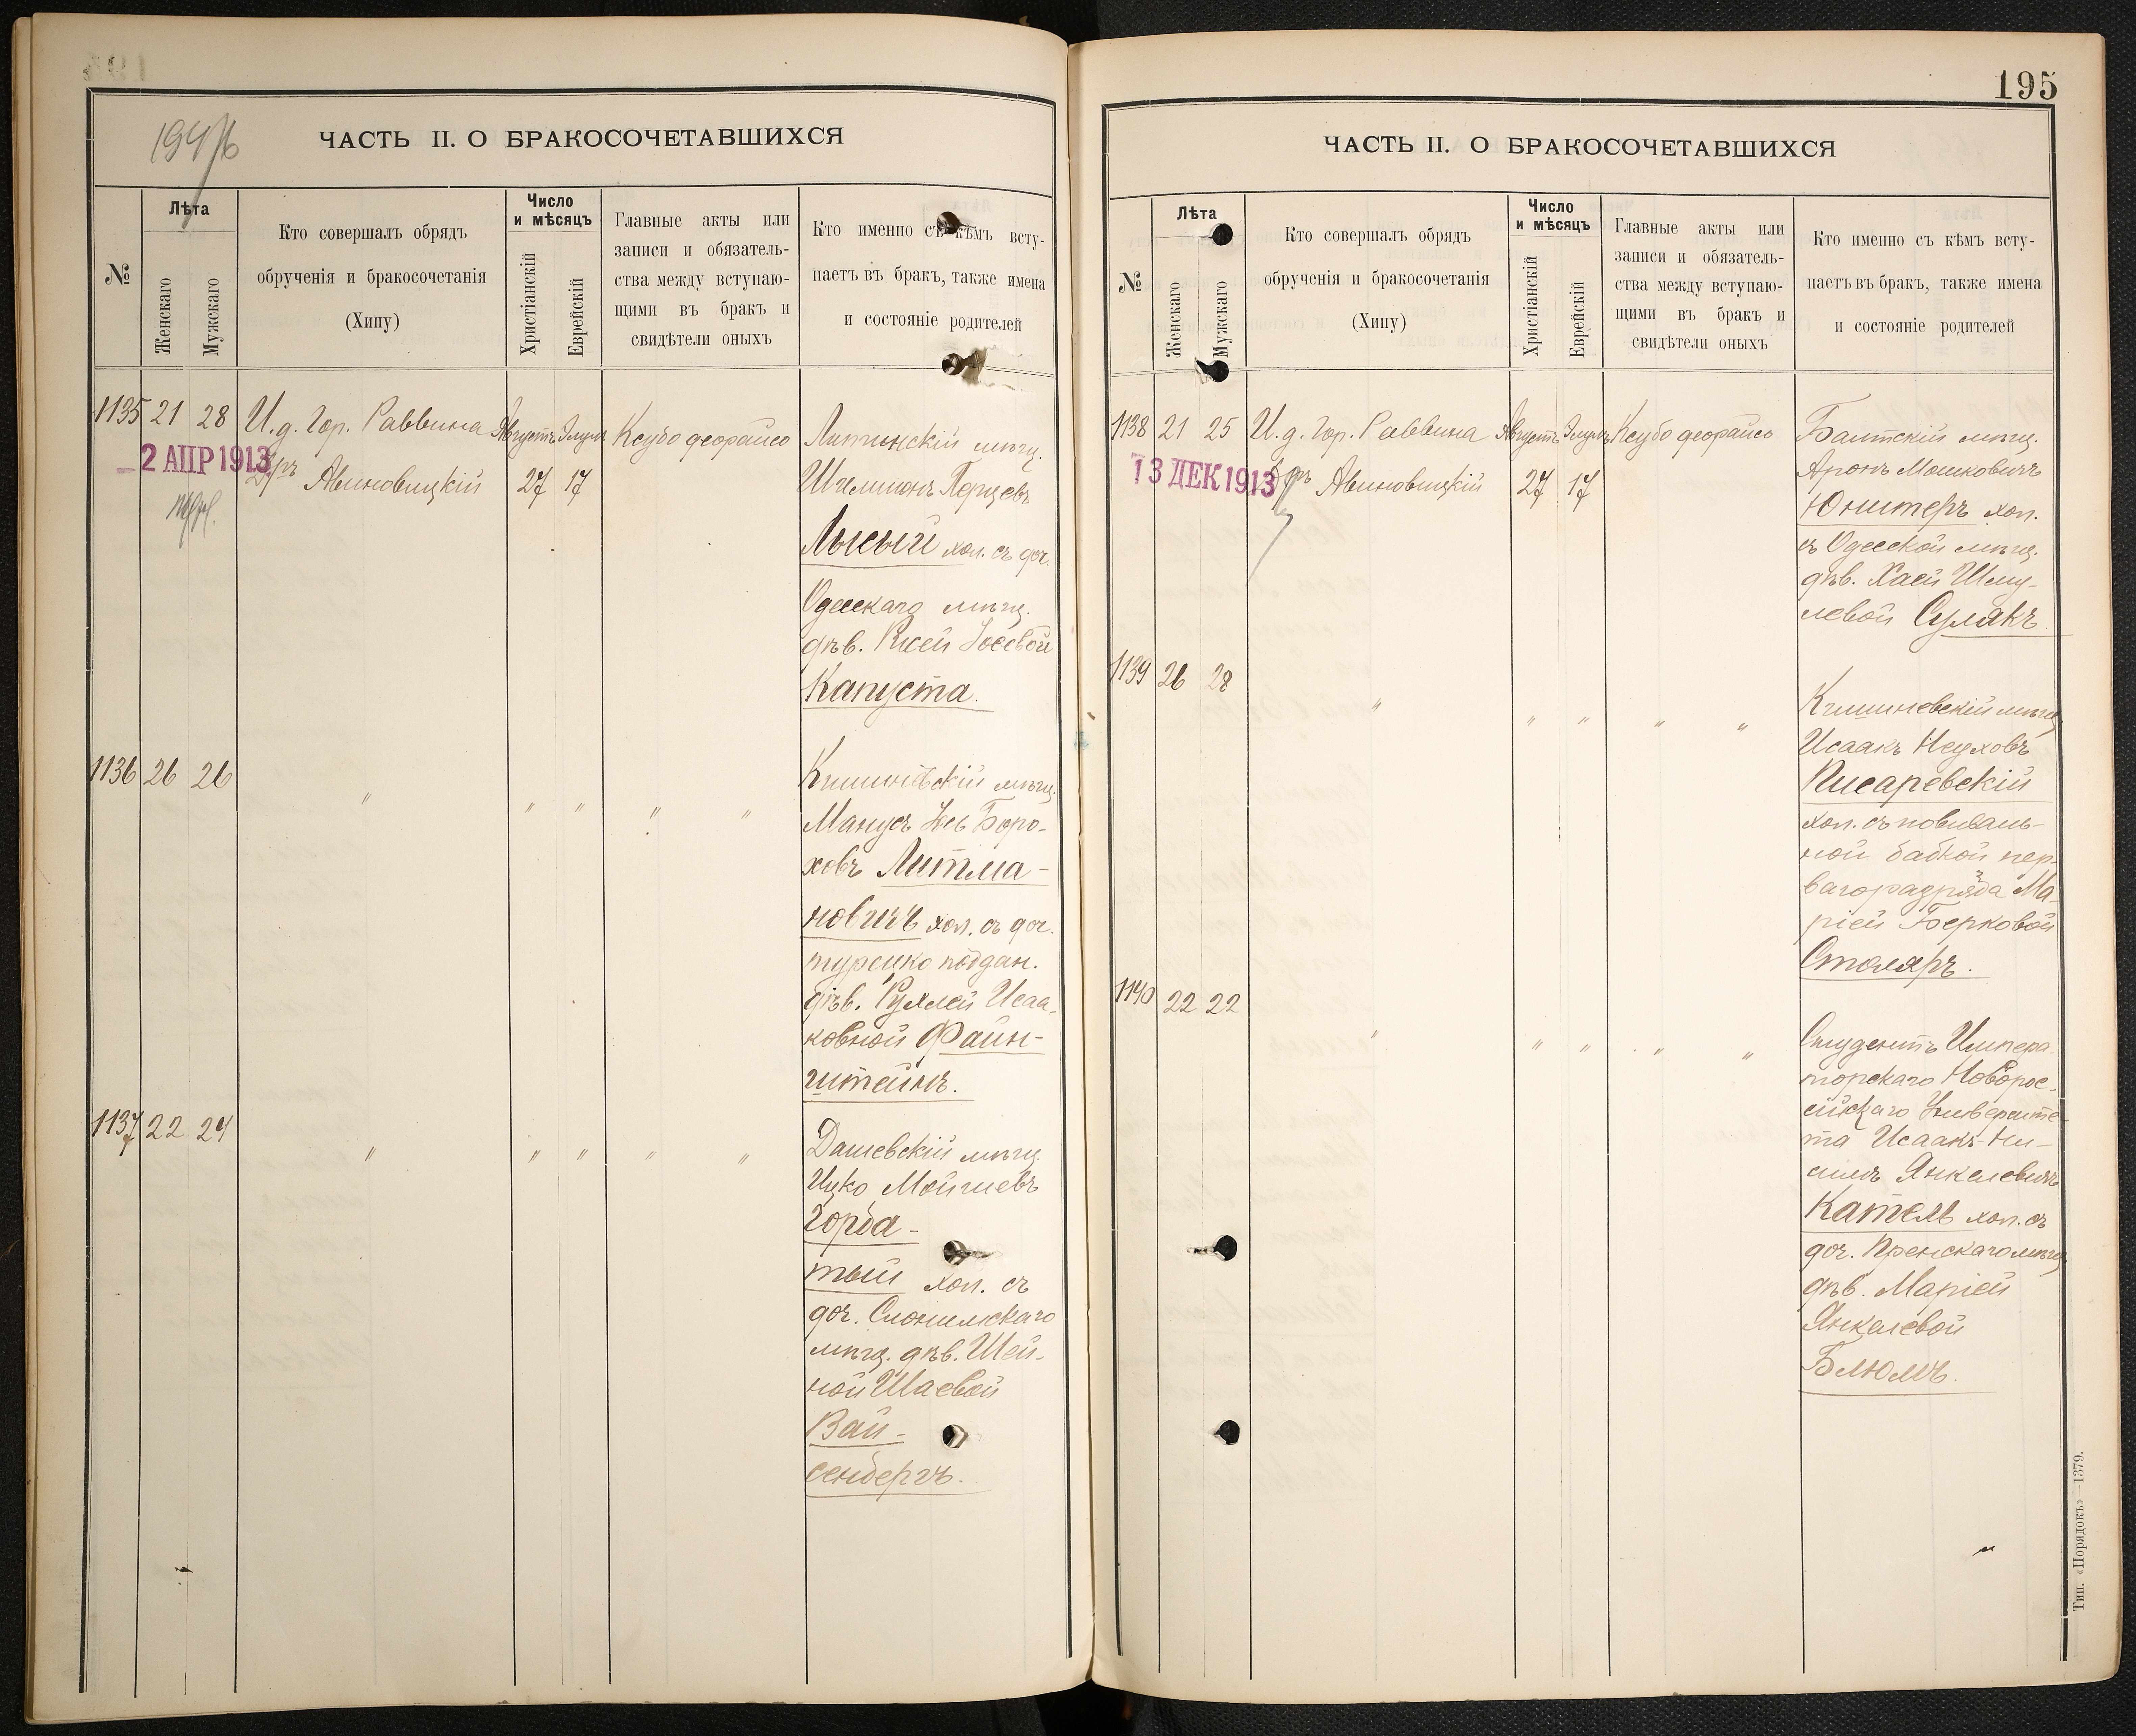 194/б
ЧАСТЬ II. О БРАКОСОЧЕТАВШИХСЯ
№
Лѣта
Женскаго
Мужскаго
Кто совершалъ обрядъ
обрученія и бракосочетанія
(Хипу)
Число
и мѣсяцъ
Христіанскій
Еврейскій
Главные акты или
записи и обязатель-
ства между вступаю-
щими въ бракъ и
свидѣтели оныхъ
Кто именно съ кѣмъ всту-
паетъ въ бракъ, также имена
и состояніе родителей
1135 21 28 И.д. Гор. Раввина Августъ Элулъ Ксубо деорайсо
2 АПР 1913
Др Авиновицкій 27 17
Литинскій мѣщ.
Шлемионъ Перцевъ
Лысый хол. съ доч.
Одесскаго мѣщ.
дѣв. Рисей Іосевой
Капуста.
1136 26 26 " " " " "
Кишинёвскій мѣщ.
Манусъ Зесь Боро-
ховъ Литма-
новичъ хол. съ доч.
турецко поддан.
дѣв. Рухлей Исаа-
ковной Файн-
штейнъ.
1137 22 24 " " " " "
Дашевскій мѣщ.
Ицко Мойшевъ
Горба-
тый хол. съ
доч. Слонимскаго
мѣщ. дѣв. Шей-
ной Шаевой
Вай-
сенбергъ.
195
ЧАСТЬ II. О БРАКОСОЧЕТАВШИХСЯ
№
Лѣта
Женскаго
Мужскаго
Кто совершалъ обрядъ
обрученія и бракосочетанія
(Хипу)
Число
и мѣсяцъ
Христіанскій
Еврейскій
Главные акты или
записи и обязатель-
ства между вступаю-
щими въ бракъ и
свидѣтели оныхъ
Кто именно съ кѣмъ всту-
паетъ въ бракъ, также имена
и состояніе родителей
1138 21 25 И.д. Гор. Раввина Августъ Элулъ Ксубо деорайсо
13 ДЕК 1913
Др Авиновицкій 27 17
Балтскій мѣщ.
Аронъ Мошковичъ
Юнитеръ хол.
съ Одесской мѣщ.
дѣв. Хаей Шму-
левой Сулякъ.
1139 26 28 " " " " "
Кишиневскій мѣщ.
Исаакъ Неуховъ
Писаревскій
хол. съ повиваль-
ной бабкой пер-
ваго разряда Ма-
ріей Берковой
Столяръ.
1140 22 22 " " " " "
Студентъ Импера-
торскаго Новорос-
сійскаго Университе-
та Исаакъ-Ни-
симъ Янкелевичъ
Кателъ хол. съ
доч. Пренскаго мѣщ.
дѣв. Маріей
Янкелевой
Блюмъ.
Тип. «Порядокъ»—1379.